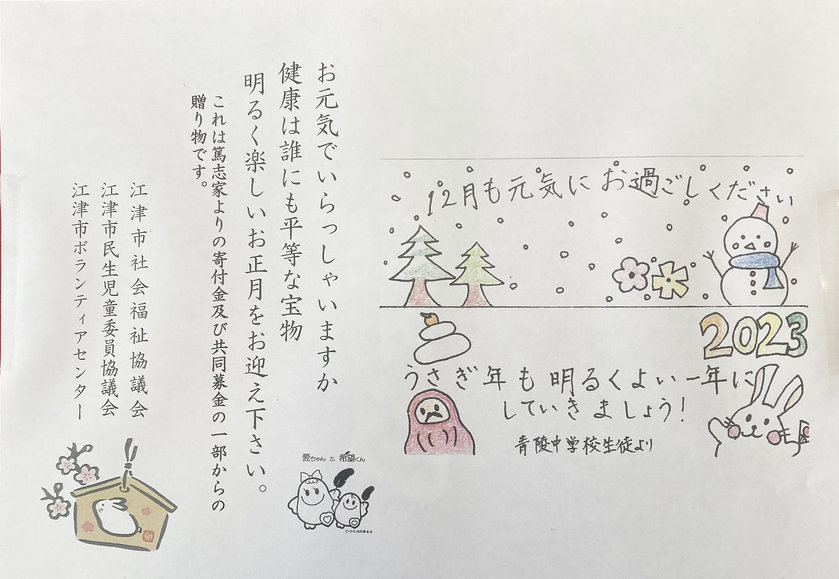 お元気でいらっしゃいますか
健康は誰にも平等な宝物
明るく楽しいお正月をお迎え下さい。
これは篤志家よりの寄付金及び共同募金の一部からの
贈り物です。
江津市社会福祉協議会
江津市民生児童委員協議会
江津市ボランティアセンター
卯
愛ちゃんと希望くん
12月も元気にお過ごしください
2023
うさぎ年も明るくよい一年に
していきましょう!
青陵中学校生徒より